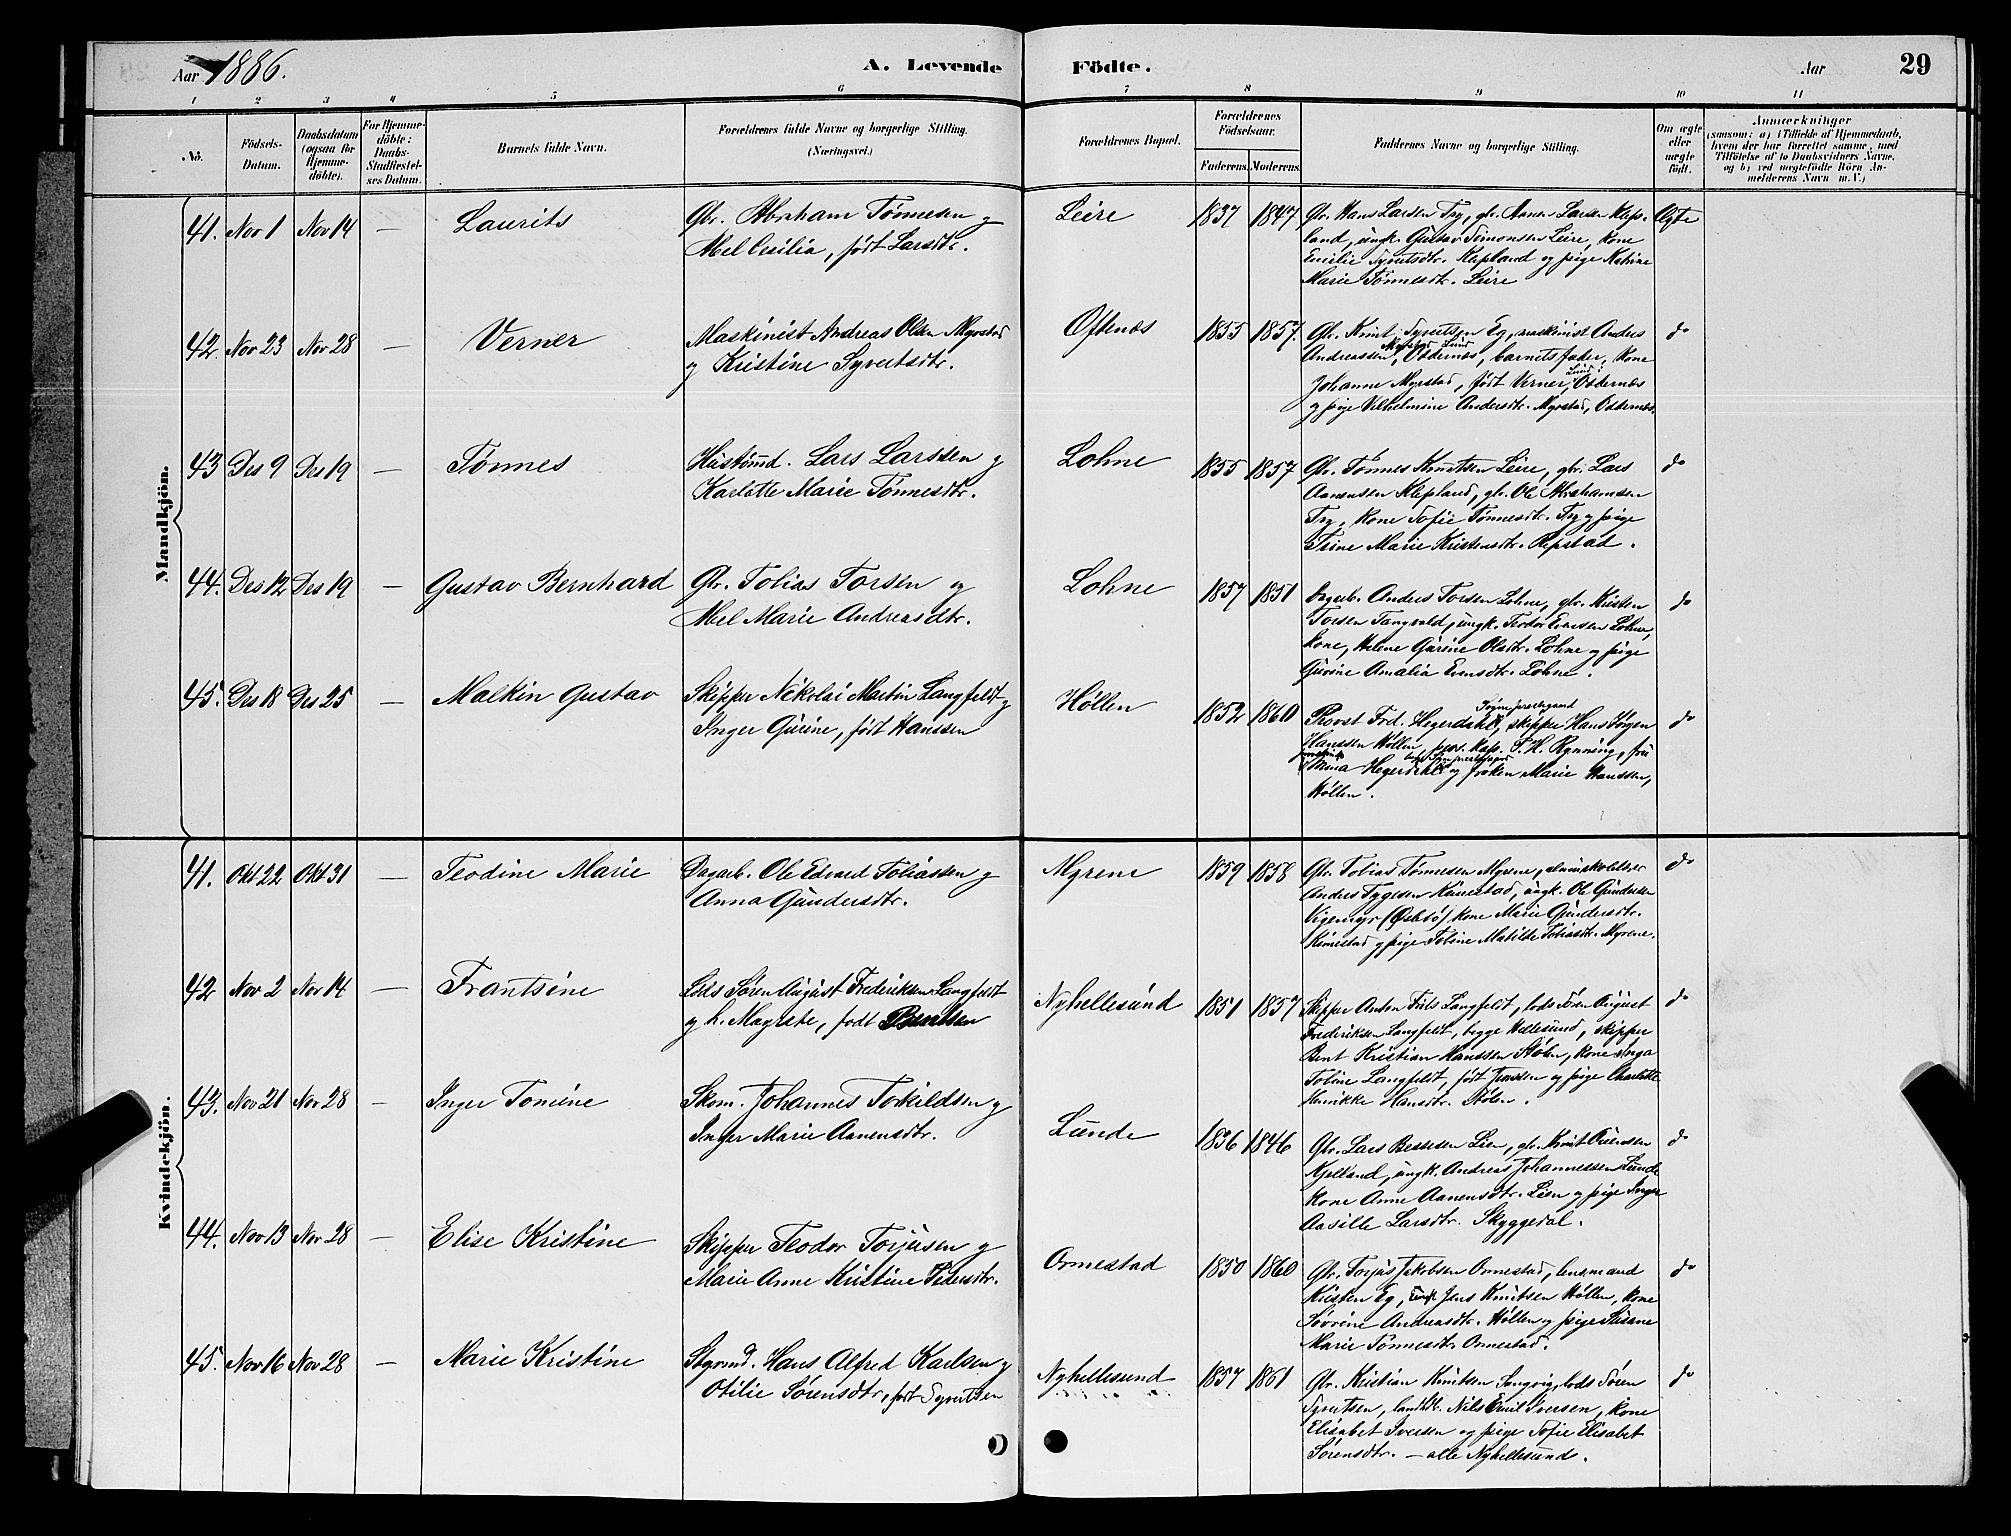 Aar 1886.
A. Levende Födte.
Aar
29
1 2 3 4 5 6 7 8 9 10 11
No.
Födsels-
Datum.
Daabsdatum
(ogsaa for
Hjemme-
döbte).
For Hjemme-
döbte:
Daabs-
Stadfæstel-
ses Datum.
Barnets fulde Navn.
Forældrenes fulde Navne og borgerlige Stilling.
(Næringsvei.)
Forældrenes Bopæl.
Forældrenes
Födselsaar.
Faderens. Moderens.
Faddernes Navne og borgerlige Stilling.
Om ægte
eller
uægte
født.
Anmærkninger
(saasom: a) i Tilfælde af Hjemmedaab,
hvem der har forrettet samme, med
Tilföielse af to Daabsvidners Navne,
og b) ved uægtefödte Börn An-
melderens Navn m. V.)
Mandkjön.
41. Nov 1 Nov 14 — Laurits
Gbr. Abraham Tønnesen og
Abel Cecilia, født Larsdtr.
Leire 1837 1847
Gbr. Hans Larsen Try, gbr. Aanen Larsen Klep-
land, ungk. Gustav Simonsen Leire, kone
Emilie Syvertsdtr. Klepland og pige Katrine
Marie Tønnesdtr. Leire
Ægte
42. Nov 23 Nov 28 — Verner
Maskinist Andreas Olsen Myrstad
og Kristine Syvertsdtr.
Oftenæs 1855 1857.
Gbr. Knut Syvertsen Eg, maskinist Anders
Andreassen, Myrstad Lund Oddernæs, barnets fader, kone
Johanne Myrstad, født Verner, Lund Oddernæs
og pige Vilhelmine Andersdtr. Myrstad, Oddernæs.
do
43 Des 9 Des 19 — Tønnes
Husømd. Lars Larssen og
Karlotte Marie Tønnesdtr.
Lohne 1855 1857
Gbr. Tønnes Knutsen Leire, gbr. Lars
Aanensen Klepland, gbr. Ole Abrahamsen
Try, kone Sofie Tønnesdtr. Try og pige
Trine Marie Kristensdtr. Repstad.
do
44. Des 12 Des 19 — Gustav Bernhard
Gbr. Tobias Torsen og
Abel Marie Andreasdtr.
Lohne 1857 1851
Dagarb. Anders Torsen Lohne, gbr. Kristen
Torsen Tangvald, ungk. Teodor Evensen Lohne,
kone, Helene Gurine Olsdtr. Lohne og pige
Gurine Amalia Evensdtr. Lohne.
do
45. Des 18 Des 25 — Malkin Gustav
Skipper Nikolai Martin Langfeldt og
Inger Gurine, født Hanssen
Høllen 1852 1860
Provst Frd. Hegerdahl, Søgne prestegaard skipper Hans Jørgen
Hanssen Høllen, pers. kap. P. H. Rynning, fru
Mina Hegerdahl og frøken Marie Hanssen,
Høllen.
do
Kvindekjön.
41. Okt 22 Okt 31 — Teodine Marie
Dagarb. Ole Edvard Tobiassen og
Anna Gundersdtr.
Myrene 1859 1858
Gbr. Tobias Tønnesen Myrene,
Anders Tygesen Kinestad, ungk. Ole Gundersen
Vigemyr (Øslebø) kone Marie Gundersdtr.
Kinestad og pige Tobine Matilde Tobiasdtr. Myrene.
do
42 Nov 2 Nov 14 — Frantsine
Lods Søren August Frederiksen Langfeldt
og h. Magrete, født Berntsen
Nyhellesund 1851 1857
Skipper Anton Friis Langfeldt, lods Søren August
Frederiksen Langfeldt, begge Hellesund, skipper
Bent Kristian Hanssen Stølen, kone Inga
Tobine Langfeldt, født Jenssen og pige Charlotte
Henrikke Hansdtr. Stølen.
do
43. Nov 21 Nov 28 — Inger Tomine
Skom. Johannes Torkildsen og
Inger Marie Aanensdtr.
Lunde 1836 1846
Gbr. Lars Bessesen Lien, gbr. Knut Ouensen
Kjelland, ungk. Andreas Johannessen Lunde
kone Anne Aanensdtr. Lien og pige Inger
Aasille Larsdtr. Skyggedal.
do
44. Nov 13 Nov 28 — Elise Kristine
Skipper Teodor Torjusen og
Marie Anne Kristine Pedersdtr.
Ormestad 1850 1860
Gbr. Torjus Jakobsen Ormestad, lensmand
Kristen Eg, ungk Jens Knutsen Høllen, kone
Sørine Andreasdtr. Høllen og pige Susane
Marie Tønnesdtr. Ormestad.
do
45. Nov 16 Nov 28 — Marie Kristine
Styrmd. Hans Alfred Karlsen og
Otilie Sørensdtr., født Syvertsen
Nyhellesund 1857 1861
Gbr. Kristian Knutsen Songvig, lods Søren
Syvertsen, Nils Emil Iversen, kone
Elisabet Iversen og pige Sofie Elisabet
Sørensdtr. — alle Nyhellesund.
do